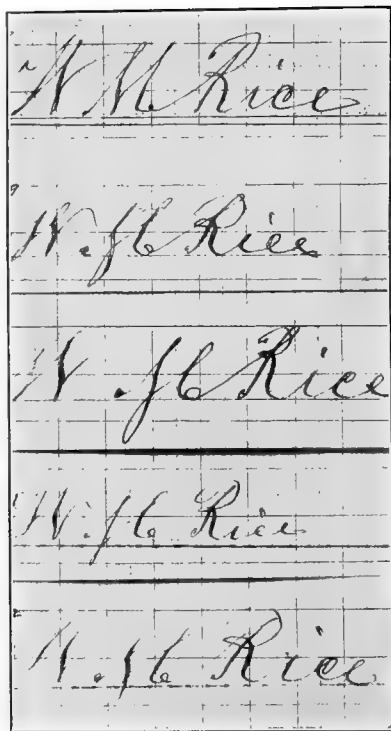 W. M. Rice
W. M. Rice
W. M. Rice
W. M. Rice
W. M. Rice